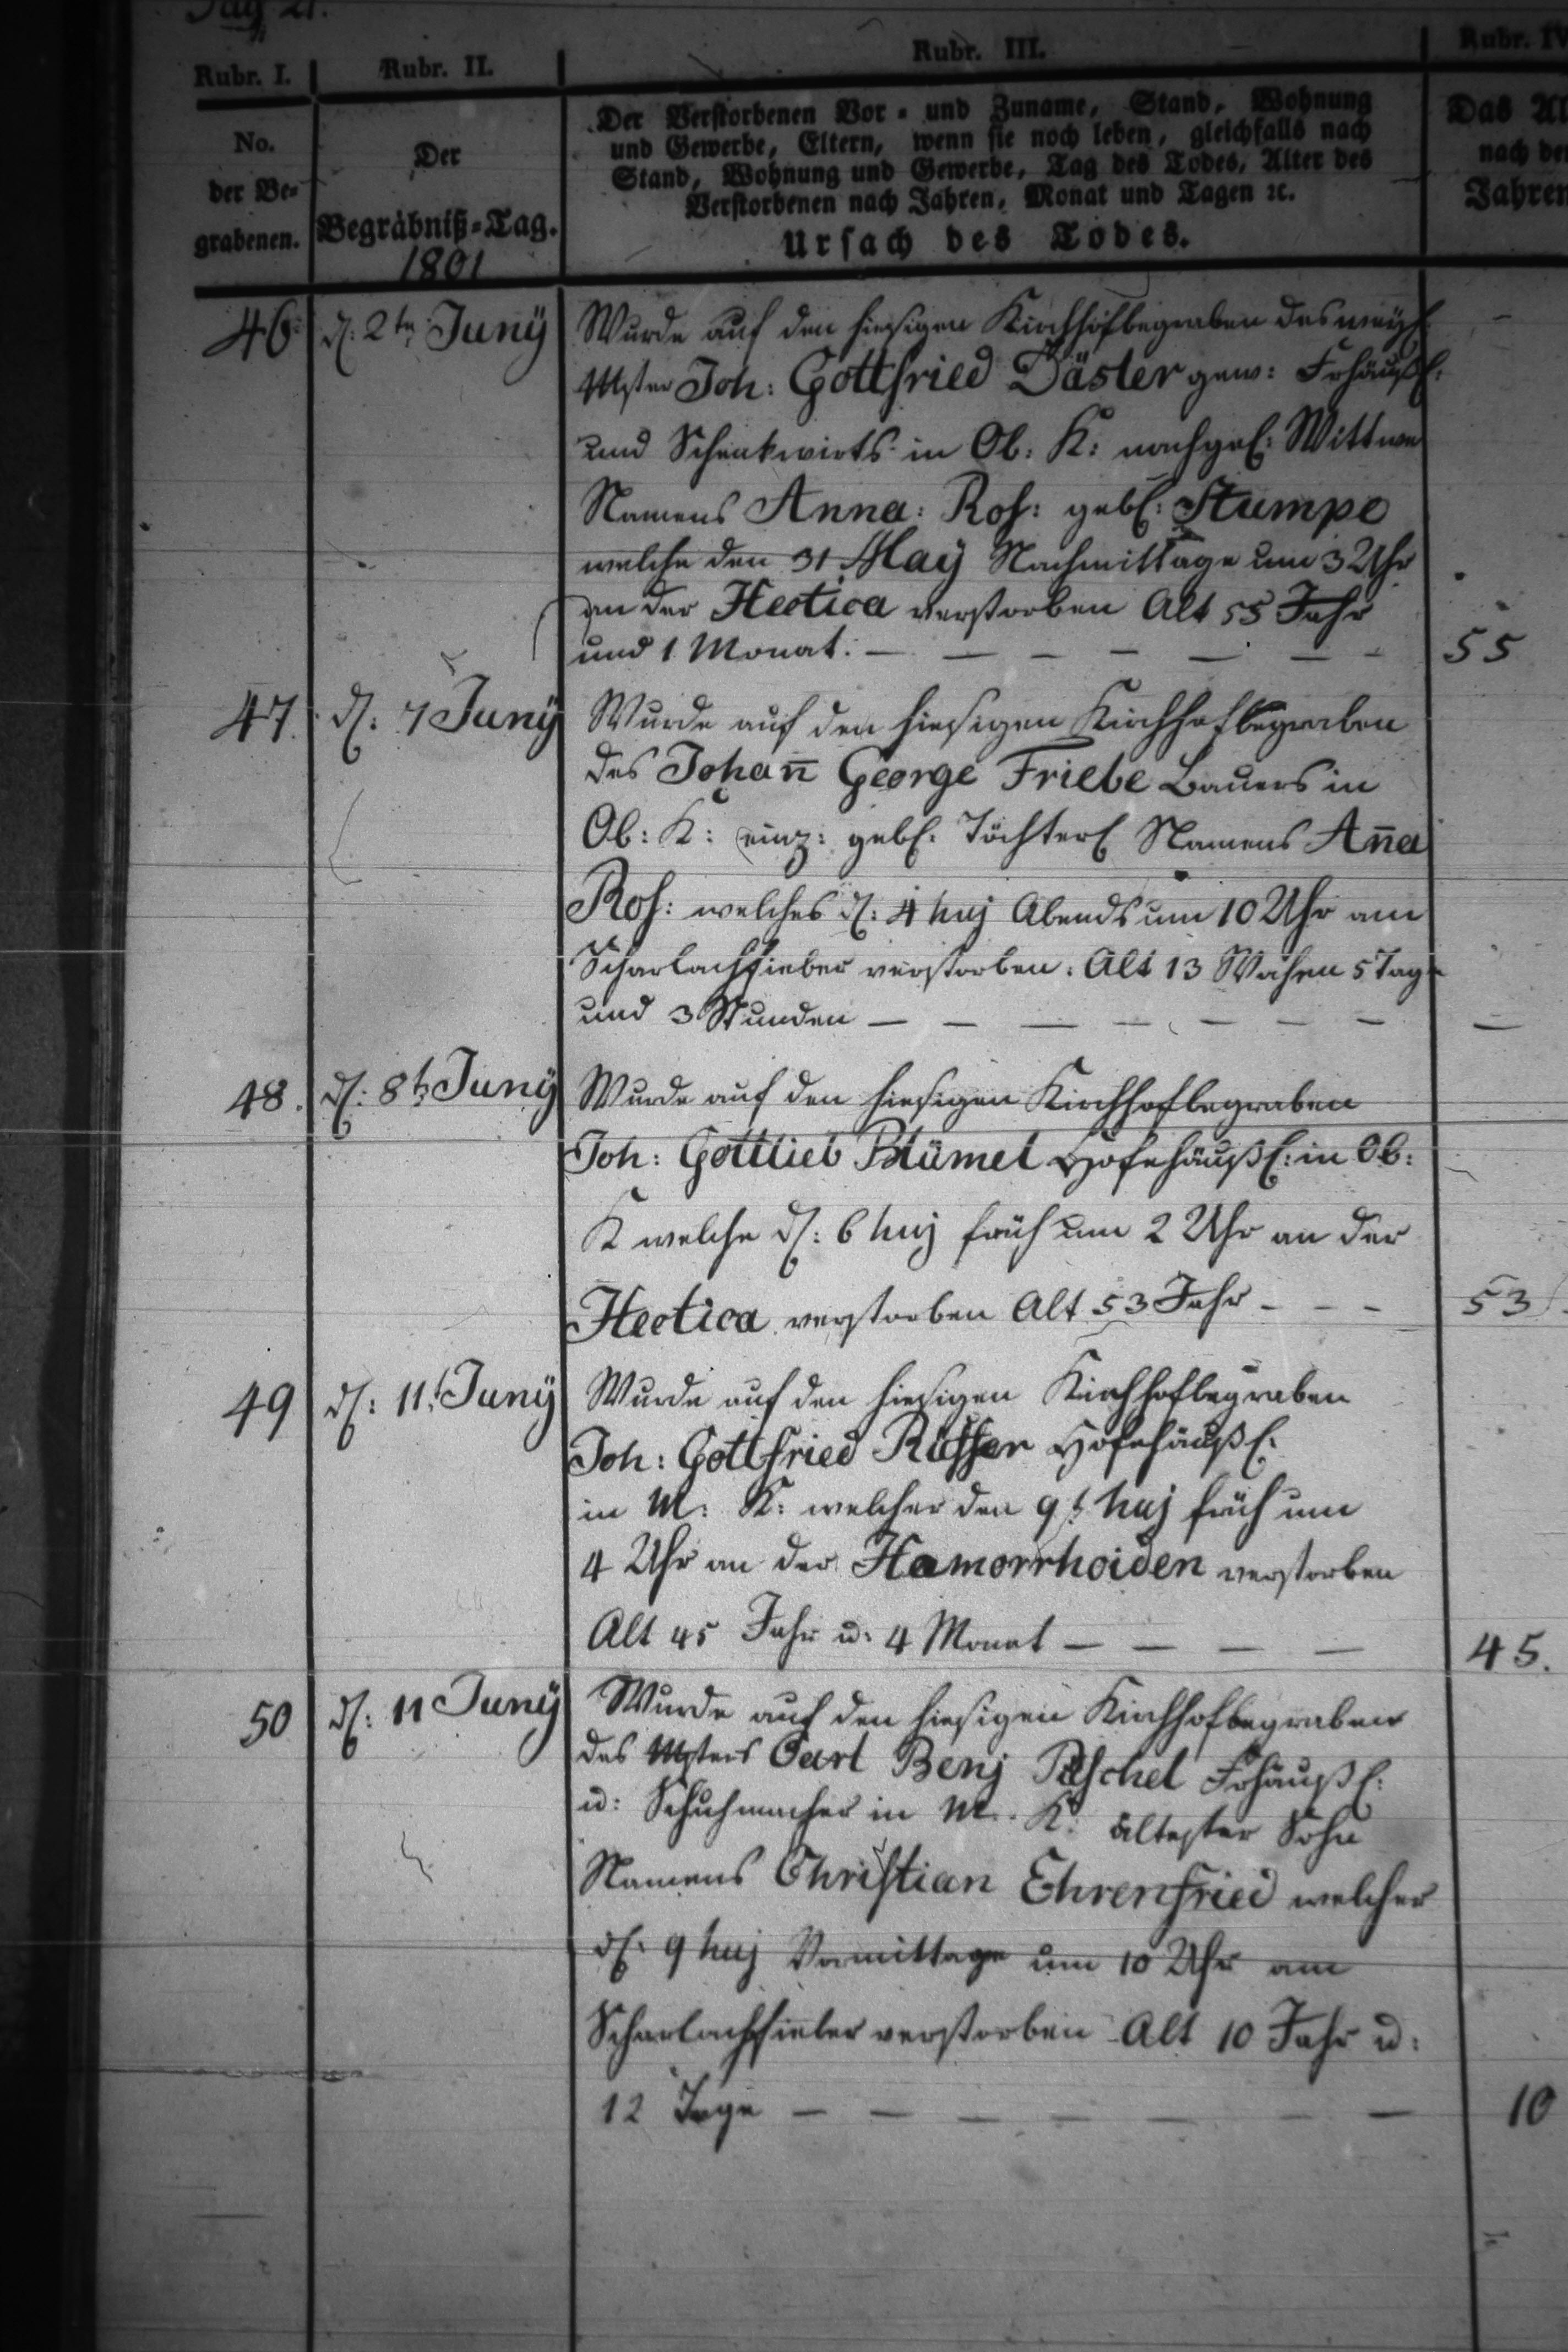 Pag 21.
Rubr. I. Rubr. II. Rubr. III. Rubr. IV
No. der Be- grabenen.
Der Begräbniß-Tag.
1801
Der Verstorbenen Vor- und Zuname, Stand, Wohnung
und Gewerbe, Eltern, wenn sie noch leben, gleichfalls nach
Stand, Wohnung und Gewerbe, Tag des Todes, Alter des
Verstorbenen nach Jahren, Monat und Tagen ꝛc.
Ursach des Todes.
Das Al
nach de
Jahren
46 d: 2tn Juny Wurde auf den hiesigen Kirchhof begraben des
Mster Joh: Gottfried Däster gew: Frhäußl:
und Schenkwirts in Ob: K: nachgel: Wittwe
Namens Anna: Ros: gebl: Stumpe
welche den 31 May Nachmittage um 3 Uhr
an der Hectica verstorben Alt 55 Jahr
und 1 Monat. — — — — — — — 55
47. d: 7 Juny Wurde auf den hiesigen Kirchhof begraben
des Johañ George Friebe Bauers in
Ob: K: einz: gebl: Töchterl Namens Añna
Ros: welches d: 4 huj Abends um 10 Uhr am
Scharlachfieber verstorben: Alt 13 Wochen 5 Tage
und 3 Stunden — — — — — — — —
48. d: 8t Juny Wurde auf den hiesigen Kirchhof begraben
Joh: Gottlieb Blümel Hofehäußl: in Ob:
K welche d: 6 huj früh um 2 Uhr an der
Hectica verstorben Alt 53 Jahr - - - 53
49 d: 11t Juny Wurde auf den hiesigen Kirchhof begraben
Joh: Gottfried Hofehäußl:
in M: K: welcher den 9t huj früh um
4 Uhr an der Hamorrhoiden verstorben
Alt 45 Jahr u: 4 Monat — — — — 45.
50 d: 11 Juny Wurde auf den hiesigen Kirchhof begraben
des Msters Carl Benj Päschel Frhäußl:
u: Schuhmacher in M: K: ältester Sohn
Namens Christian Ehrenfried welcher
d: 9 huj Vormittage um 10 Uhr am
Scharlachfieber verstorben Alt 10 Jahr u:
12 Tage — — — — — — — 10